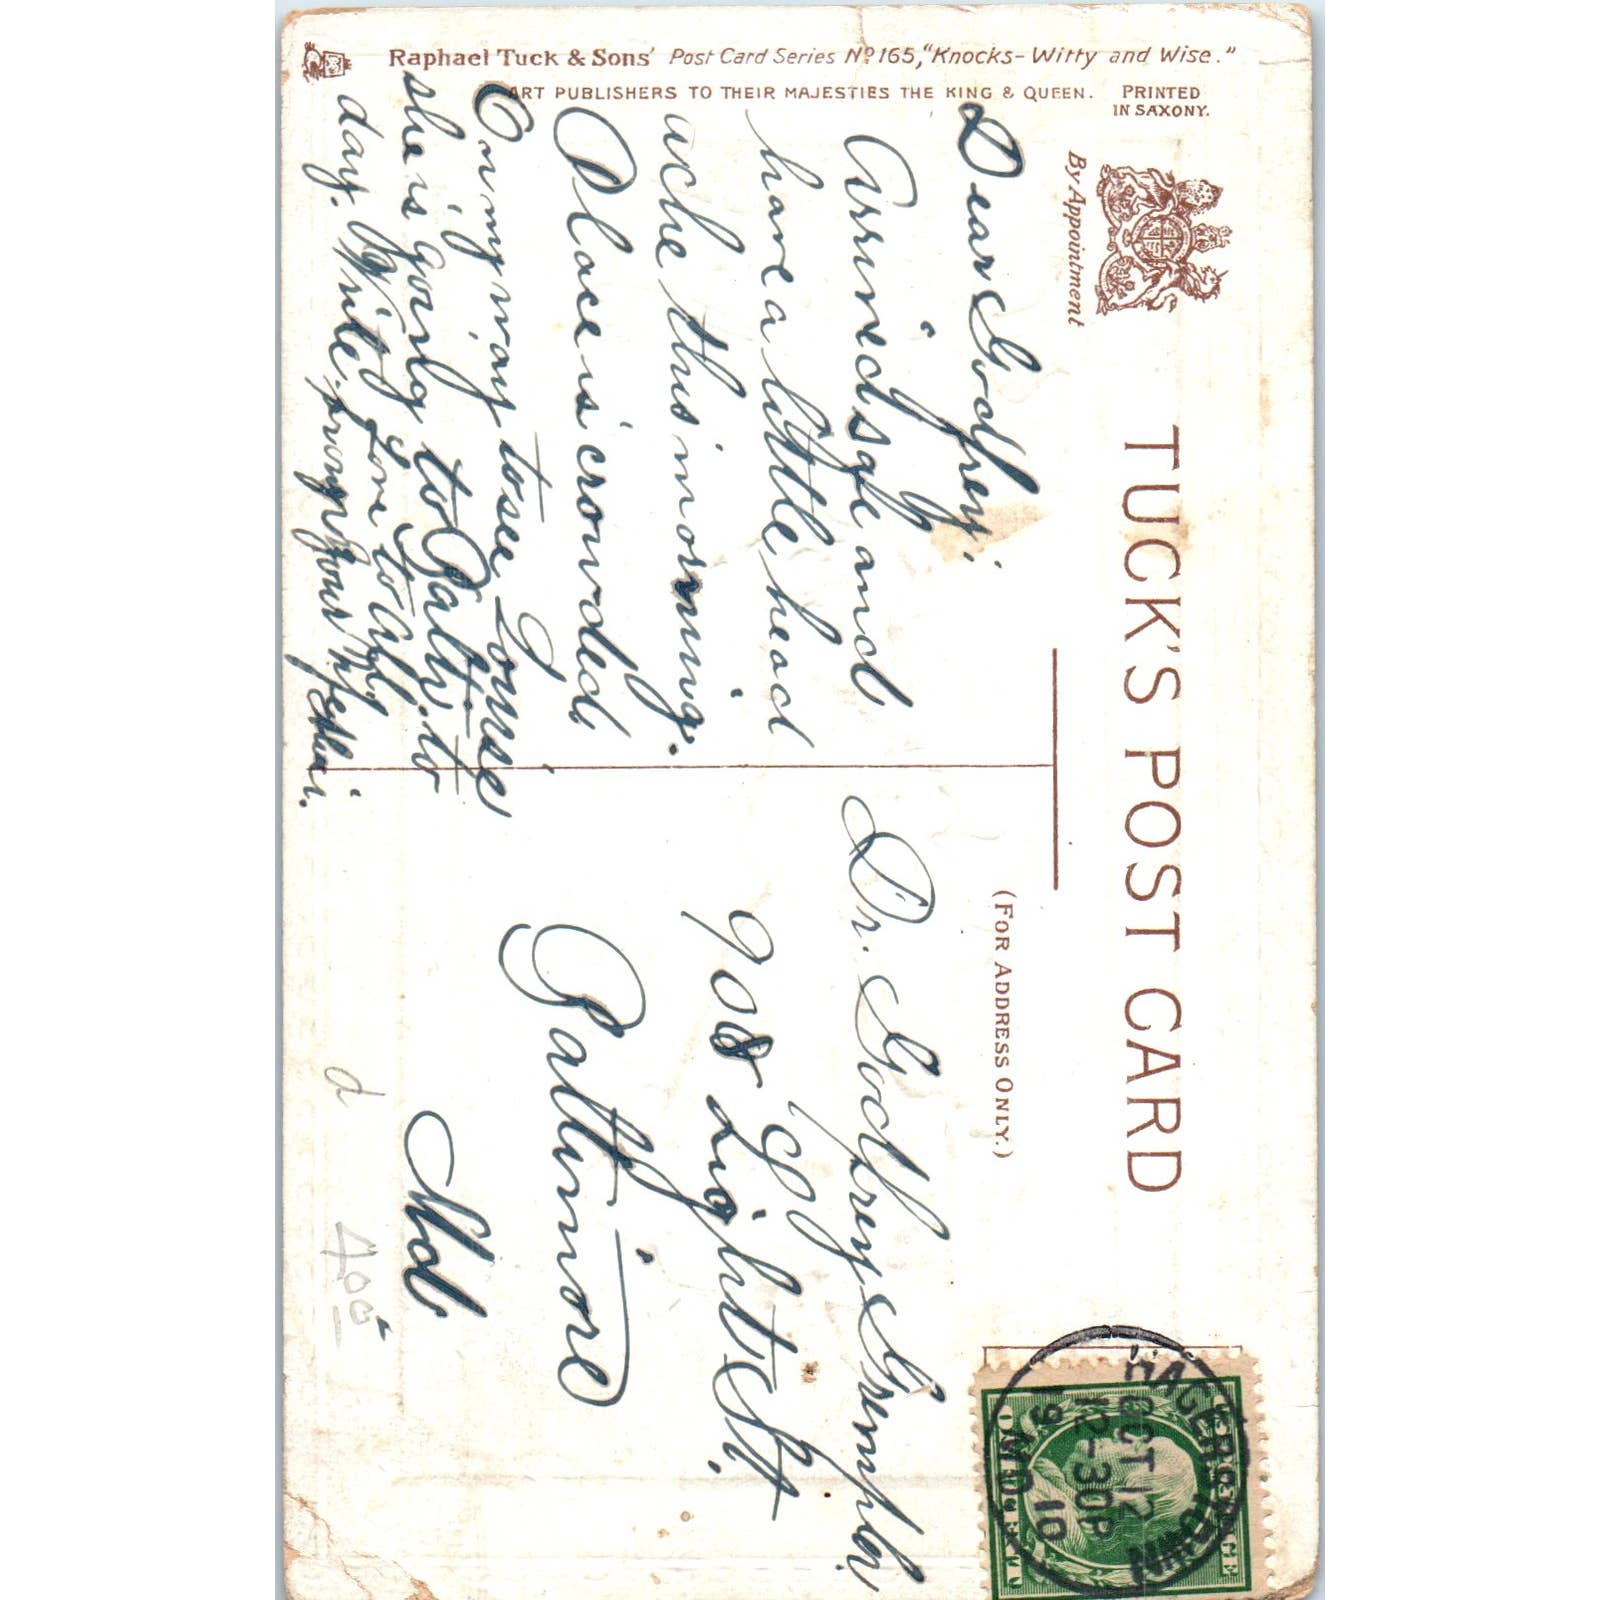 Raphael Tuck & Sons' Post Card Series Nº 165, "Knocks-Witty and Wise."
ART PUBLISHERS TO THEIR MAJESTIES THE KING & QUEEN.
PRINTED
IN SAXONY.
By Appointment
TUCK'S POST CARD
(FOR ADDRESS ONLY.)
Dear Godfrey:
Arrived safe and
have a little head
ache this morning.
Place is crowded
On my way to see Louise
she is going to Balti. to
day. Write. Love to all.
from your
HAGERSTOWN
OCT 12
12-30P
19 MD. 10
ONE
Dr. Godfrey
908 Light St.
Baltimore
Md
d
400